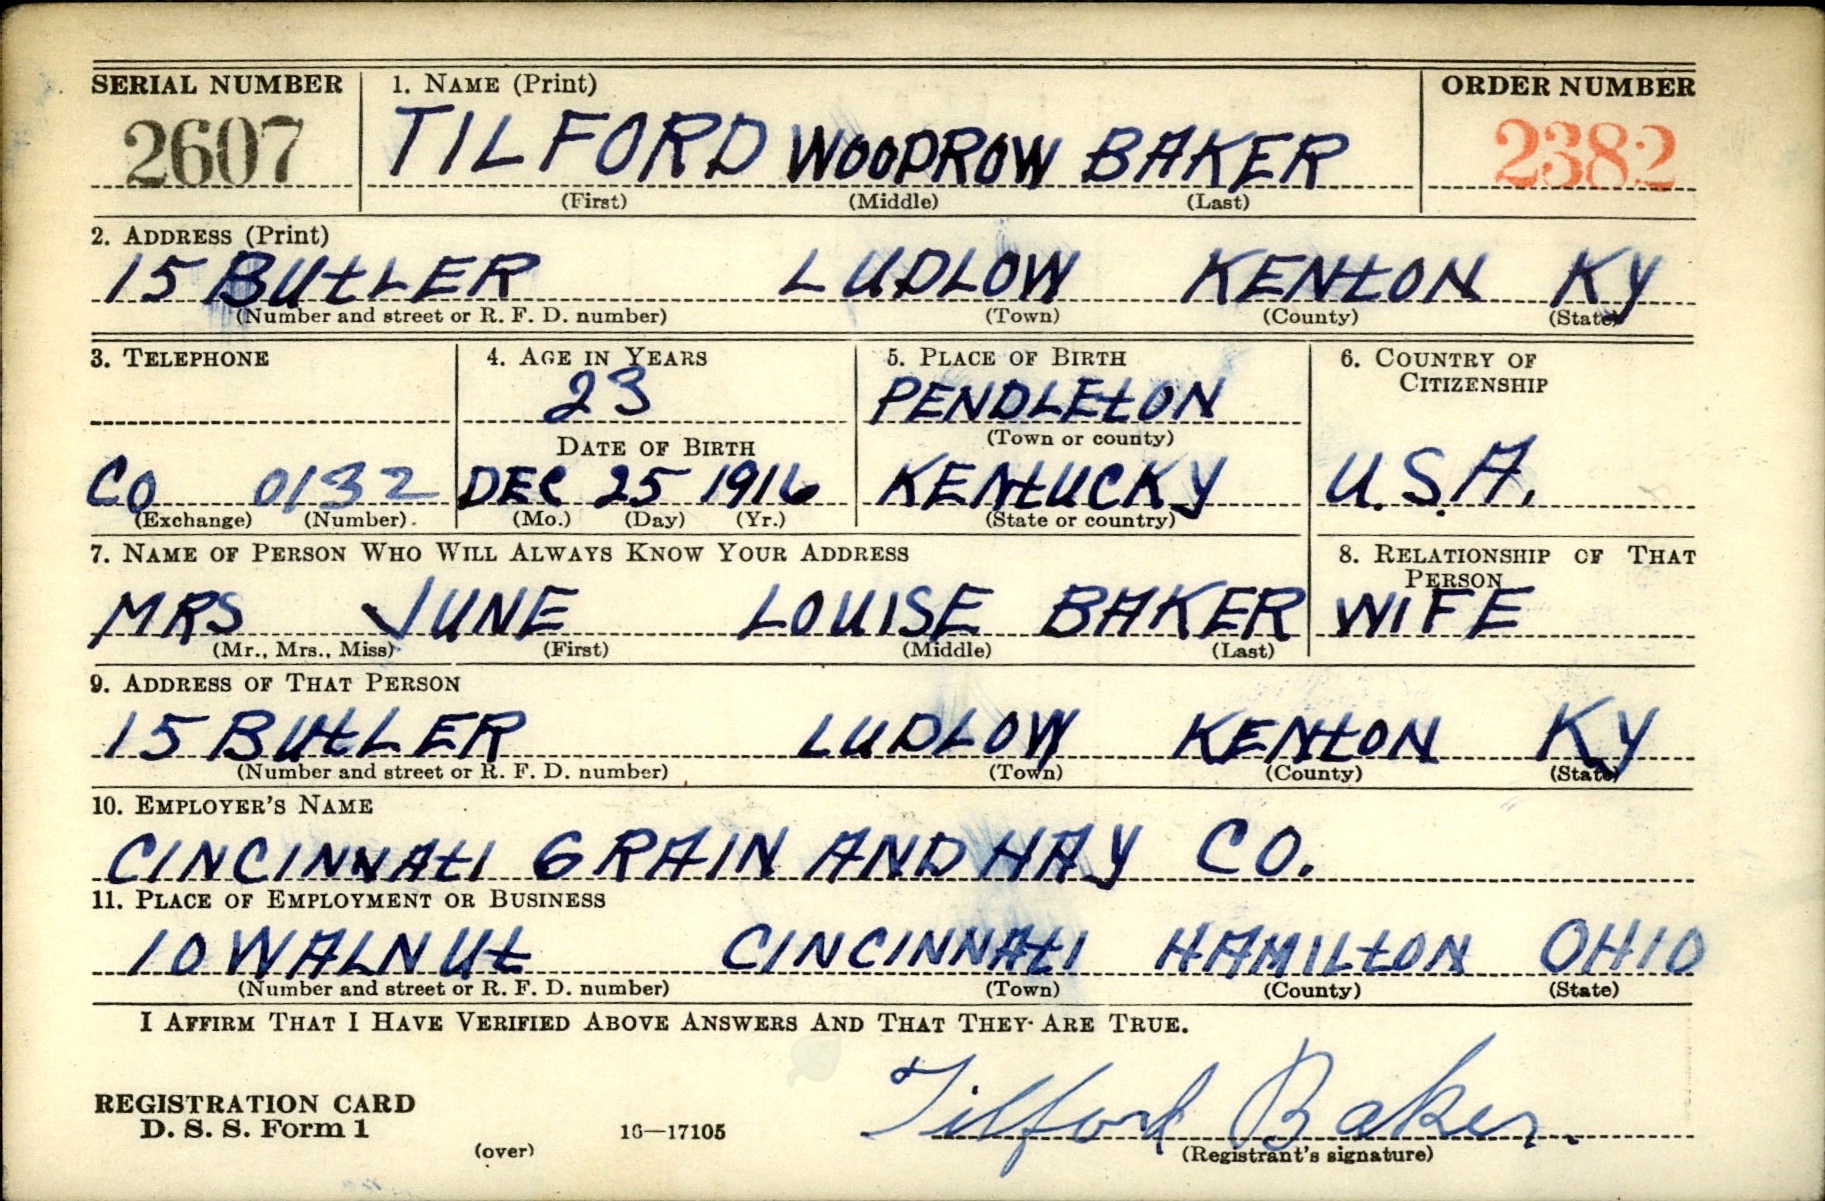 SERIAL NUMBER 1. NAME (Print) ORDER NUMBER
2607 TILFORD WOODROW BAKER 2382
(First) (Middle) (Last)
2. ADDRESS (Print)
15 BUtLER LUDLOW KENtON KY
(Number and street or R. F. D. number) (Town) (County) (State)
3. TELEPHONE 4. AGE IN YEARS 5. PLACE OF BIRTH 6. COUNTRY OF
CITIZENSHIP
23 PENDLEtON
(Town or county)
DATE OF BIRTH
CO 0132 DEC 25 1916 KENtUCKY U.S.A.
(Exchange) (Number) (Mo.) (Day) (Yr.) (State or country)
7. NAME OF PERSON WHO WILL ALWAYS KNOW YOUR ADDRESS 8. RELATIONSHIP OF THAT
PERSON
MRS JUNE LOUISE BAKER WIFE
(Mr., Mrs., Miss) (First) (Middle) (Last)
9. ADDRESS OF THAT PERSON
15 BUtLER LUDLOW KENtON KY
(Number and street or R. F. D. number) (Town) (County) (State)
10. EMPLOYER'S NAME
CINCINNAtI GRAIN AND HAY CO.
11. PLACE OF EMPLOYMENT OR BUSINESS
10 WALNUt CINCINNAtI HAMILtON OHIO
(Number and street or R. F. D. number) (Town) (County) (State)
I AFFIRM THAT I HAVE VERIFIED ABOVE ANSWERS AND THAT THEY ARE TRUE.
Tilford Baker.
REGISTRATION CARD
D. S. S. Form 1 16—17105
(over) (Registrant's signature)